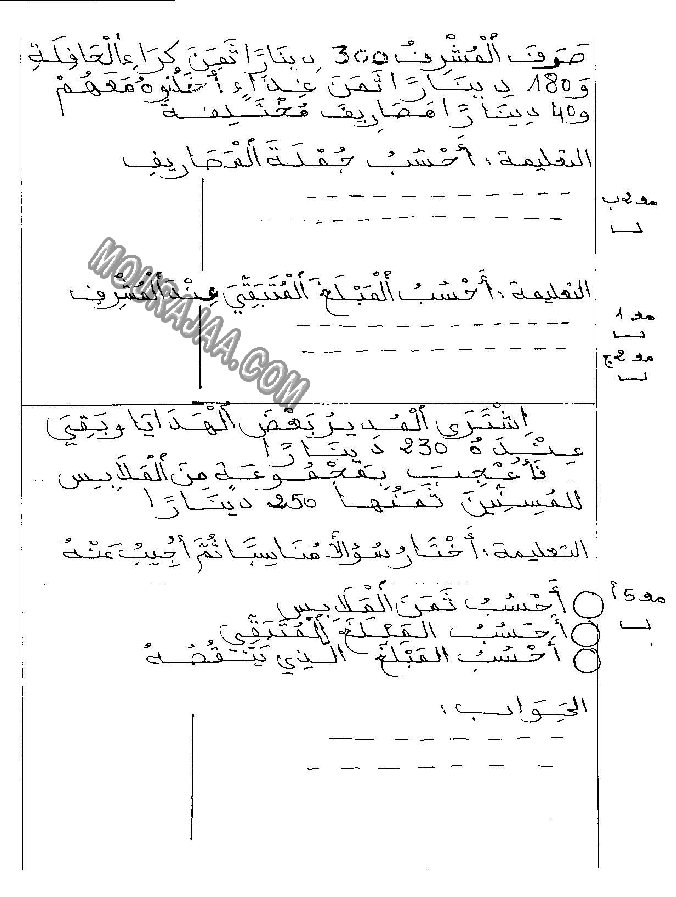 صَرَفَ ٱلْمُشْرِفُ 300 دِينَارًا ثَمَنَ كِرَاءِ ٱلْحَافِلَةِ
وَ 180 دِينَارًا ثَمَنَ غِذَاءٍ أَخَذُوهُ مَعَهُمْ
و 40 دِينَارًا مَصَارِيفَ مُخْتَلِفَةً
التعليمة : أَحْسُبُ جُمْلَةَ ٱلْمَصَارِيفِ
مع 2 ب
MOURAJAA.COM
التعليمة : أَحْسُبُ ٱلْمَبْلَغَ ٱلْمُتَبَقِّيَ عِنْدَ ٱلْمُشْرِفِ
مع 1
مع 2 ج
اِشْتَرَى ٱلْمُدِيرُ بَعْضَ ٱلْهَدَايَا وَبَقِيَ
عِنْدَهُ 230 دِينَارًا
فَأُعْجِبَ بِمَجْمُوعَةٍ مِنَ ٱلْمَلَابِيسِ
لِلمُسِنِّينَ ثَمَنُهَا 250 دِينَارًا
التعليمة : أَخْتَارُ سُؤَالًا مُنَاسِبًا ثُمَّ أُجِيبُ عَنْهُ
مع 5 أ
أَحْسُبُ ثَمَنَ ٱلْمَلَابِيسِ
أَحْسُبُ المَبْلَغَ ٱلْمُتَبَقِّيَ
أَحْسُبُ المَبْلَغَ الَّذِي يَنْقُصُهُ
الجَوَاب :